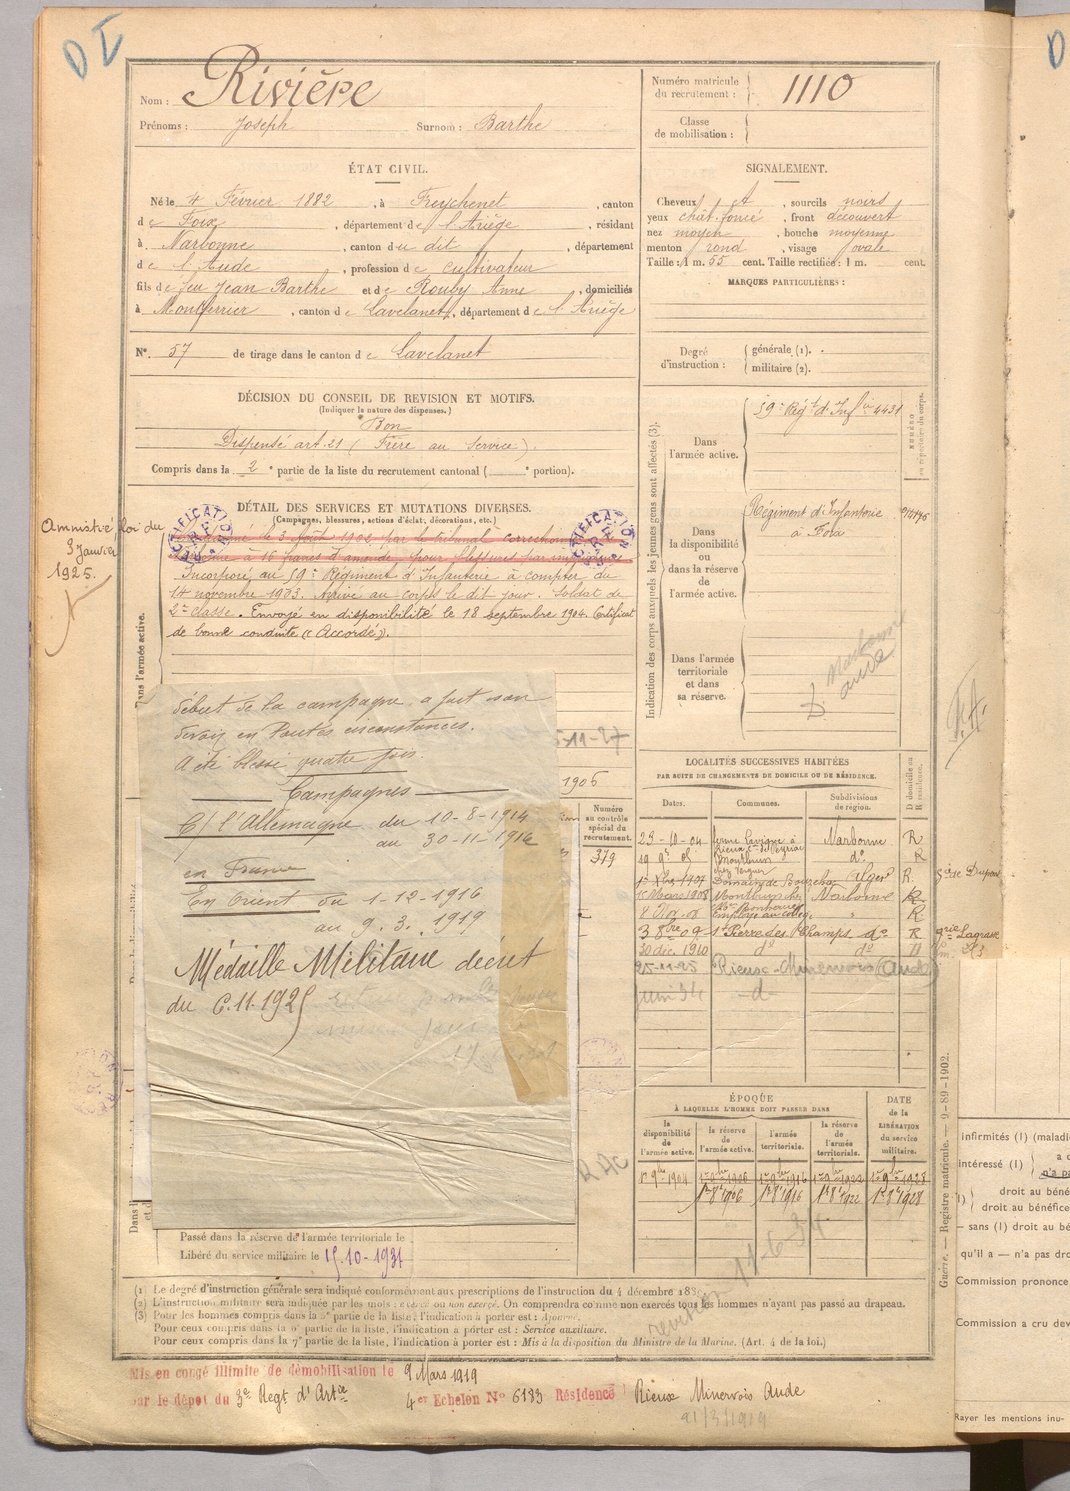 D I
Nom : Rivière
Prénoms : Joseph Surnom : Barthe
Numéro matricule
du recrutement : 1110
Classe
de mobilisation :
ÉTAT CIVIL.
Né le 4 Février 1882, à Freychenet, canton
de Foix, département de l'Ariège, résidant
à Narbonne, canton du dit, département
de l'Aude, profession de cultivateur
fils de feu Jean Barthe et de Rouby Anne, domiciliés
à Montferrier, canton de Lavelanet, département de l'Ariège
N° 57 de tirage dans le canton de Lavelanet
SIGNALEMENT.
Cheveux , sourcils noirs
yeux chât. foncé, front découvert
nez moyen, bouche moyenne
menton rond, visage ovale
Taille : 1 m. 55 cent. Taille rectifiée : 1 m. cent.
MARQUES PARTICULIÈRES :
Degré
d'instruction :
générale (1).
militaire (2).
DÉCISION DU CONSEIL DE REVISION ET MOTIFS.
(Indiquer la nature des dispenses.)
Bon
Dispensé art. 21 (Frère au Service).
Compris dans la 2e partie de la liste du recrutement cantonal ( e portion).
DÉTAIL DES SERVICES ET MUTATIONS DIVERSES.
(Campagnes, blessures, actions d'éclat, décorations, etc.)
RECTIFICATION
RECTIFICATION
Amnistié, loi du
3 Janvier
1925.
le 3 Août 1902, par le tribunal correctionnel
à 16 francs d'amende pour blessures par imprudence
Incorporé au 59e Régiment d'Infanterie à compter du
14 novembre 1903. Arrivé au corps le dit jour. Soldat de
2e classe. Envoyé en disponibilité le 18 septembre 1904. Certificat
de bonne conduite "Accordé".
Dans l'armée active.
début de la campagne, a fait son
devoir en toutes circonstances.
A été blessé quatre fois.
Campagnes
C/ l'Allemagne du 10-8-1914
au 30-11-1916
en France
En Orient du 1-12-1916
au 9.3.1919
Médaille Militaire décret
du 6.11.1925
11-27
1906
Numéro
au contrôle
spécial du
recrutement.
379
Indication des corps auxquels les jeunes gens sont affectés (3).
Dans
l'armée active.
59e Régt d'Infie 4431
NUMÉRO
au répertoire du corps.
Dans
la disponibilité
ou
dans la réserve
de
l'armée active.
Régiment d'Infanterie
à Foix
Dans l'armée
territoriale
et dans
sa réserve.
Narbonne
Aude
LOCALITÉS SUCCESSIVES HABITÉES
PAR SUITE DE CHANGEMENTS DE DOMICILE OU DE RÉSIDENCE.
Dates. Communes. Subdivisions
de région.
D domicile ou
R résidence.
23-10-04 ferme Lavigne à Narbonne R
19 9bre 05 d° R
1er Xbre 1907 Domaine de Alger R
15 Mars 1908 Narbonne R
Employé au R
3 8bre 09 St Pierre des Champs d° R grie Lagrasse
30 déc 1910 d° d°
25-11-25 Rieux-Minervois (Aude)
Juin 34 -d-
ÉPOQUE
À LAQUELLE L'HOMME DOIT PASSER DANS
DATE
de la
LIBÉRATION
du service
militaire.
la
disponibilité
de
l'armée active.
la réserve
de
l'armée active.
l'armée
territoriale.
la réserve
de
l'armée
territoriale.
1er 9bre 1904 1er 9bre 1906 1er 9bre 1916 1er 9bre 1922 1er 9bre 1928
1er 8bre 1906 1er 8bre 1916 1er 8bre 1922 1er 8bre 1928
Passé dans la réserve de l'armée territoriale le
Libéré du service militaire le 15-10-1931
(1) Le degré d'instruction générale sera indiqué conformément aux prescriptions de l'instruction du 4 décembre 18
(2) L'instruction militaire sera indiquée par les mots : exercé ou non exercé. On comprendra comme non exercés tous les hommes n'ayant pas passé au drapeau.
(3) Pour les hommes compris dans la partie de la liste, l'indication à porter est : Ajourné.
Pour ceux compris dans la partie de la liste, l'indication à porter est : Service auxiliaire.
Pour ceux compris dans la 7e partie de la liste, l'indication à porter est : Mis à la disposition du Ministre de la Marine. (Art. 4 de la loi.)
Mis en congé illimité de démobilisation le 9 Mars 1919
par le dépôt du 3e Régt d'Artie 4er Echelon N° 6183 Résidence Rieux Minervois Aude
Guerre. — Registre matricule. — 9-89-1902.
D
Infirmités (1) (maladi
intéressé (1)
a d
n'a pa
droit au béné
droit au bénéfice
— sans (1) droit au bé
qu'il a — n'a pas dro
Commission prononce
Commission a cru dev
Rayer les mentions inu-